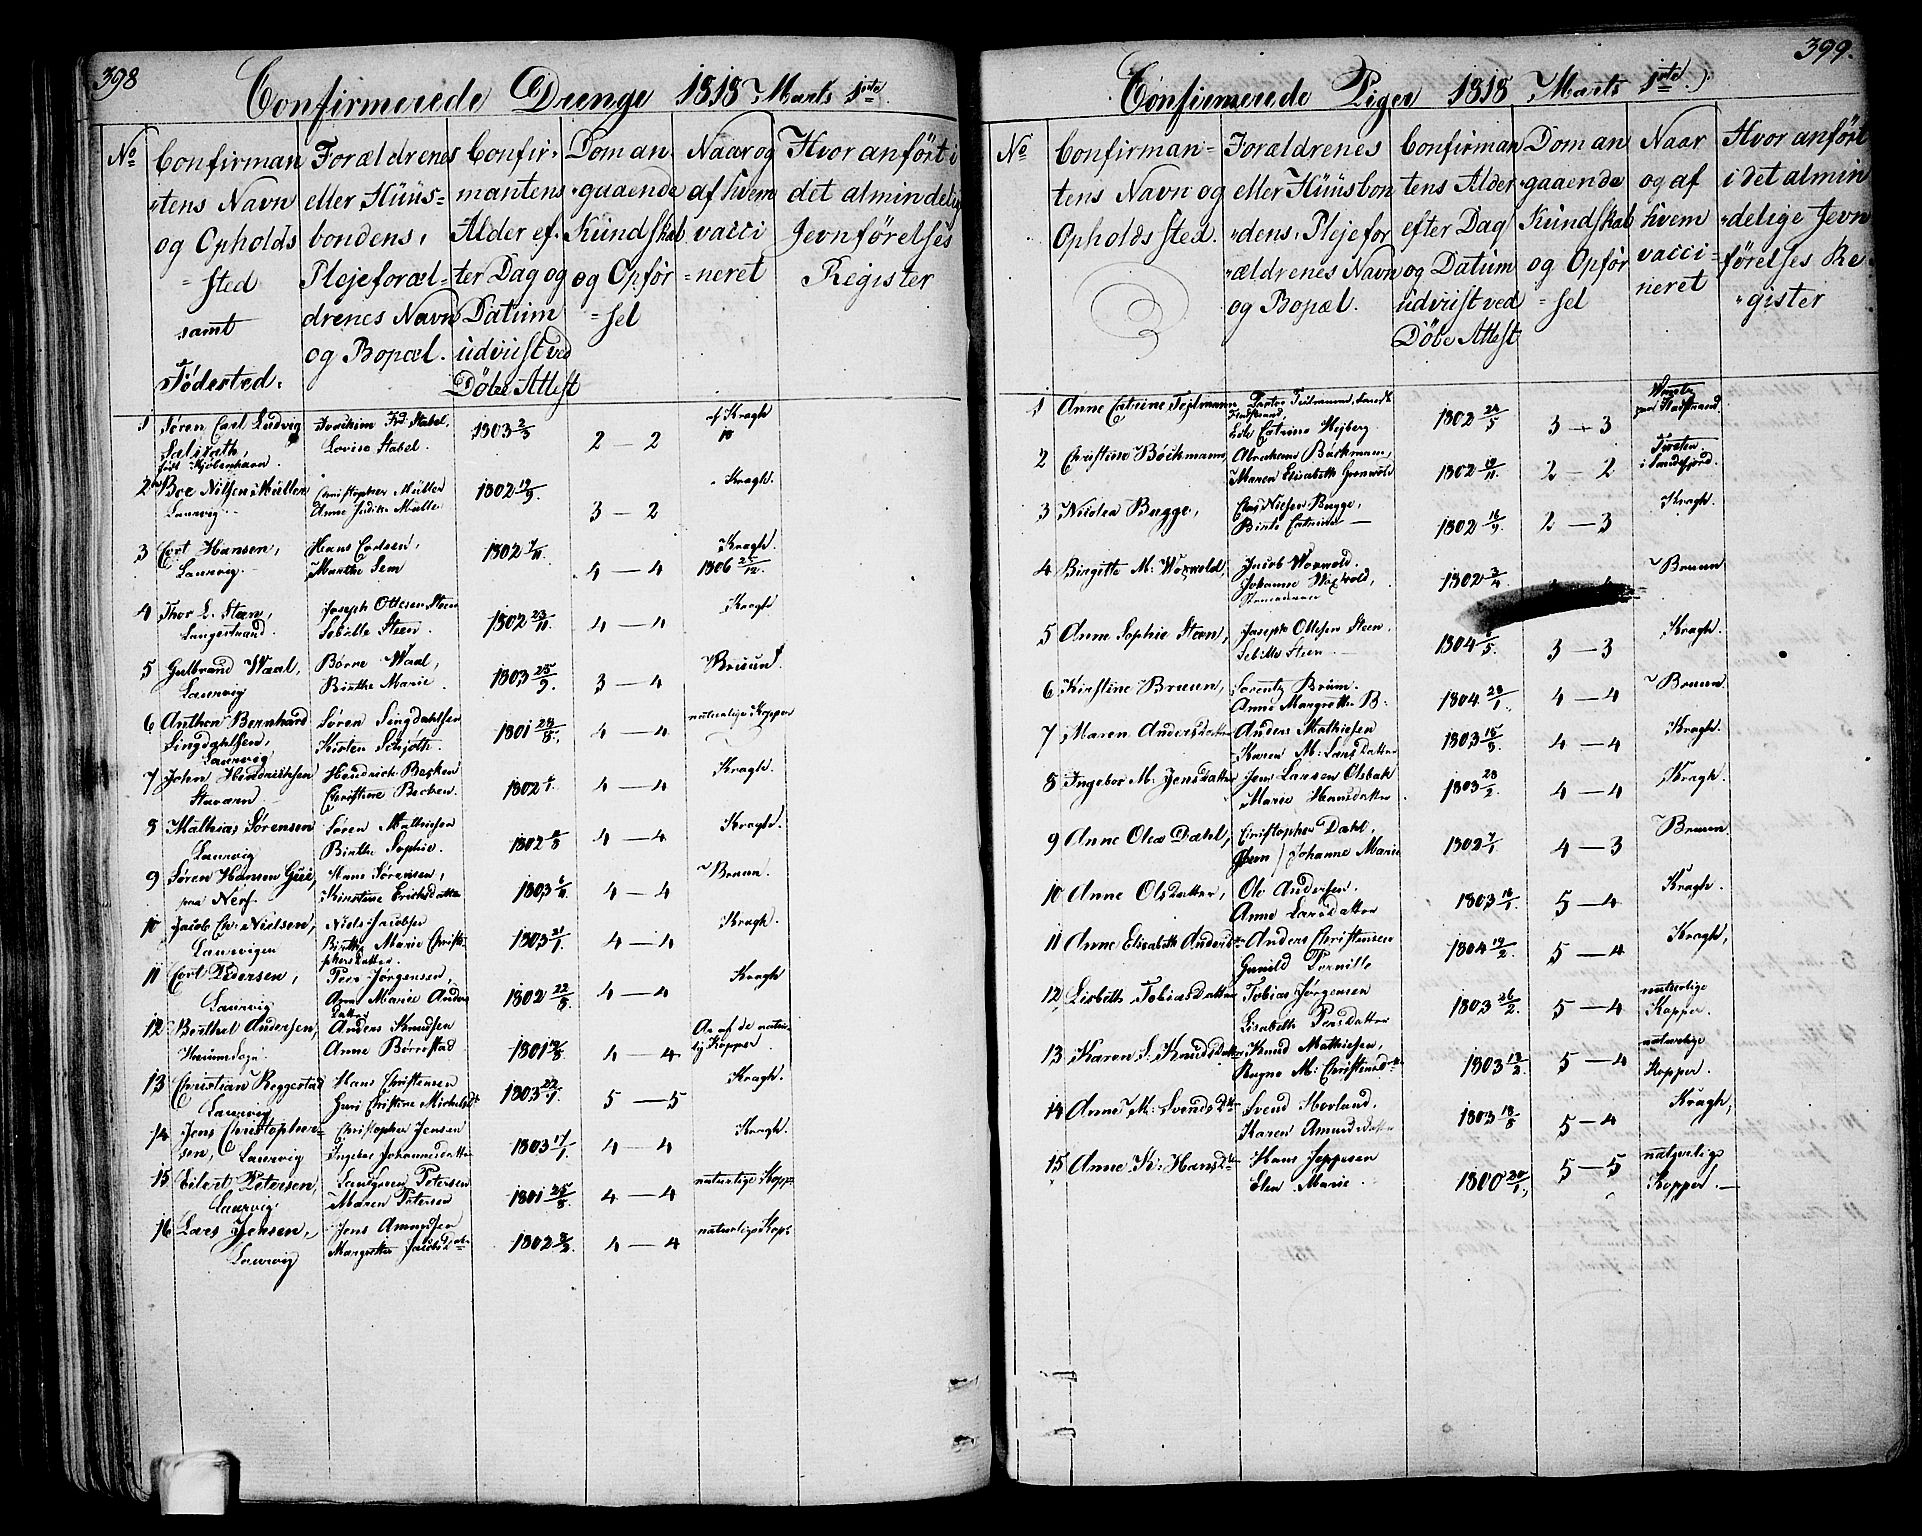 398
Confirmerede Drenge 1818 Marts 1ste
No
Confirman
tens Navn
og Opholds
sted
samt
Födested.
Forældrenes
eller Hüüs-
bondens,
Plejeforæl-
drenes Navn
og Bopæl.
Confir-
mantens
Alder ef-
ter Dag og
Datum
üdviist ved
Döbe Attest
Dom an
gaaende
Kündskab
og Opför
sel
Naar og
af hvem
vacci
neret
Hvor anfört i
det almindelige
Jevnförelses
Register
1 Søren Carl Ludvig
født Kjøbenhavn.
Joachim Frd. Stabel,
Lovise Stabel
1803 2/3
2 — 2
af Kragh
2 Boe Nilsen Müller
Laurvig
Christopher Müller
Anne Müller
1802 19/9.
3 — 2
Kragh.
3 Cort Hansen,
Laurvig.
Hans Cortsen,
Marthe Sem
1802
4 — 4
Kragh.
1806 25/12.
4 Thor L. Steen,
Langestrand.
Joseph Ottesen Steen
Sebille Steen.
1802 23/11
4 — 4
Kragh
5 Gulbrand Waal,
Laurvig
Børre Waal,
Birthe Marie
1803 25/9
3 — 4
6 Anthon Bernhard
Lingdahlsen,
Laurvig
Søren Lingdahlsen
Kirsten Schjøth.
1801 28/8.
4 — 4
naturlige Kopper
7 John Hendrichsen
Staværn
Hendrich Becken
Christine Becken.
1802
4 — 4
Kragh.
8 Mathias Sørensen
Laurvig
Søren Mathiesen
Birthe Sophie.
1802
4 — 4
Kragh.
9 Søren Hansen
Hans Sörensen,
Kirstine Erichsdatter
1803
4 — 4
Bruun.
10 Jacob Chr. Nielsen,
Laurvigen
Niels Jacobsen
Birthe Marie Christo-
phersdatter.
1803 21/1.
4 — 4
Kragh.
11 Cort Pedersen,
Laurvig
Peer Jörgensen,
Anne Marie Anders
datter
1802 22/8
4 — 4
Kragh
12 Berthel Andersen,
Anders Knudsen
Anne Børrestad
1801
4 — 4
naturlig Kopper
13 Christian Reggestad
Laurvig
Hans Christensen
Guri Christine Michelsd
1803
5 — 5
Kragh.
14 Jens Christopher-
sen, Laurvig
Christopher Jensen
Ingebor Johannesdatter
1803 17/1
4 — 4
Kragh.
15 Eilert Petersen,
Laurvig
Petersen
Maren Petersen
1801 25/8
4 — 4
naturlige Kopp
16 Lars Jensen,
Laurvig
Jens Amundsen
Margrethe Jacobsd
1802
4 — 4
naturlige Kop
399.
Confirmerede Piger 1818 Marts 1ste
No
Confirman-
tens Navn og
Opholdssted.
Forældrenes
eller Hüüsbon
dens, Plejefor
ældrenes Navn
og Bopæl.
Confirman
tens Alder
efter Dag
og Datum
üdviist ved
Döbe Attest
Dom an
gaaende
Kündskab
og Opför
sel
Naar
og af
hvem
vacci-
neret
Hvor anfört
i det almin
delige Jevn
förelses Re
gister
1 Anne Catrine Tejlmann
Catrine Hejberg.
1802 24/5
3 — 3
2 Christine Böckmann,
Abraham Böckmann,
Maren Elisabeth Grönvold
1802
2 — 2
i Sandefjord.
3 Nicolea Bugge,
Nielsen Bugge,
Birte Catrine —
1802 16/9.
2 — 3
Kragh.
4 Birgitte M: Woxvold,
Jacob Woxvold.
Johanne
1802 3/4
Bruun
5 Anne Sophie Steen,
Joseph Ottesen Steen,
Sebille Steen
1804
3 — 3
Kragh.
6 Kirstine Bruun,
Lorentz Bruun.
Anne Margrethe B.
1804
4 — 4
Bruun.
7 Maren Andersdatter
Anders Mathiesen
Karen M: Larsdatter
1803
4 — 4
Kragh.
8 Ingebor M: Jensdatter
Jens Larsen Olsbak
Marie Hansdatter
1803 28/2.
4 — 4
Kragh.
9 Anne Olea Dahl,
Christopher Dahl,
Johanne Marie
1802
4 — 3
Bruun
10 Anne Olsdatter,
Ole Andersen.
Anne Larsdatter
1803 16/1.
5 — 4
Kragh.
11 Anne Elisabeth Andersdt
Anders Christensen
Gunild Pernille
1804 19/2.
5 — 4
Kragh,
12 Lisbeth Tobiasdatter
Tobias Jörgensen
Elisabeth Pensdatter
1803 26/2.
5 — 4
naturlige
Kopper.
13 Karen S. Knudsdatter
Knud Mathiesen,
M: Christensd
1803 13/2
5 — 4
naturlige
Kopper.
14 Anne M: Svendsd
Svend Herland.
Karen Amundsdatter
1803 18/8
5 — 4
Kragh,
15 Anne K: Hansd
Hans Jeppesen
Elen Marie.
1800
5 — 5
naturlige
Kopper.